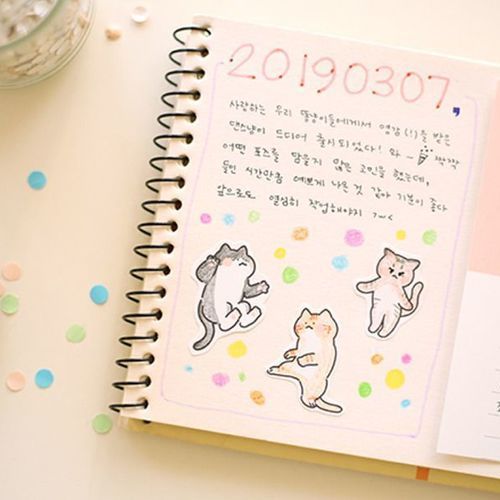 20190307
사랑하는 우리 똥냥이들에게서 영감(!)을 받은
댄스냥이 드디어 출시되었다! 와~ 짝짝
어떤 포즈를 담을지 많은 고민을 했는데,
들인 시간만큼 예쁘게 나온 것 같아 기분이 좋다
앞으로도 열심히 작업해야지